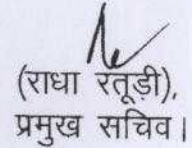 (राधा रतूड़ी),
प्रमुख सचिव।